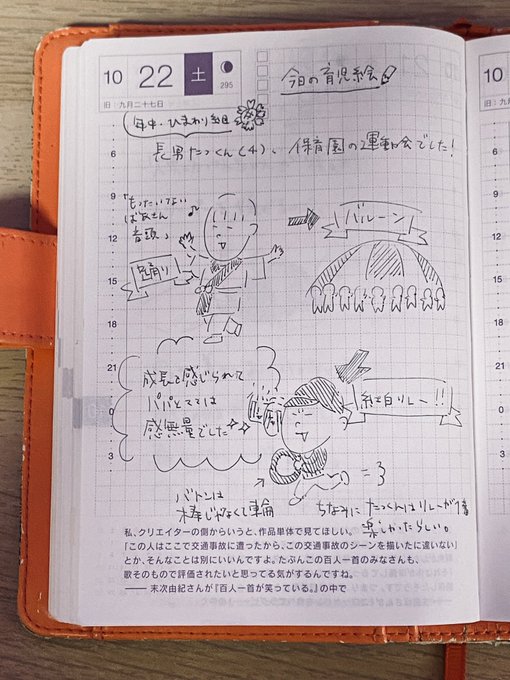 10 22 土 295
旧：九月二十七日
今日の育児絵
年中・ひまわり組
長男たっくん(4)、保育園の運動会でした！
「もったいない
ばあさん
音頭」
踊り
バルーン
成長を感じられて
パパとママは
感無量でした
紅白リレー!!
バトンは
棒じゃなくて輪
ちなみに たっくんはリレーが1番
楽しかったらしい。
6
9
12
15
18
21
0
3
私、クリエイターの側からいうと、作品単体で見てほしい。
「この人はここで交通事故に遭ったから、この交通事故のシーンを描いたに違いない」
とか、そんなことは別にいいんですよ。たぶんこの百人一首のみなさんも、
歌そのもので評価されたいと思ってる気がするんですね。
—— 末次由紀さんが『百人一首が笑っている。』の中で
10
旧：